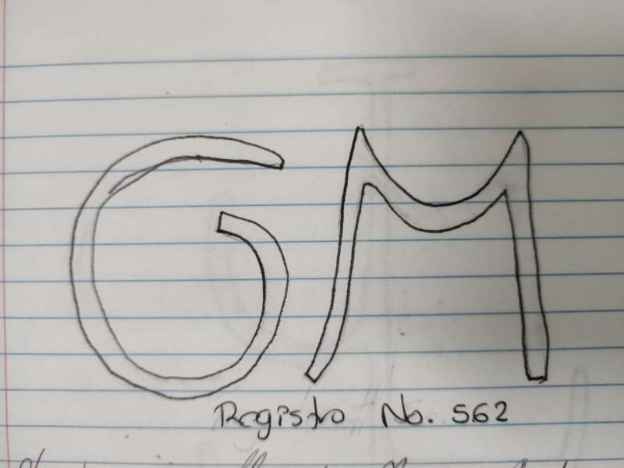 GM
Registro No. 562